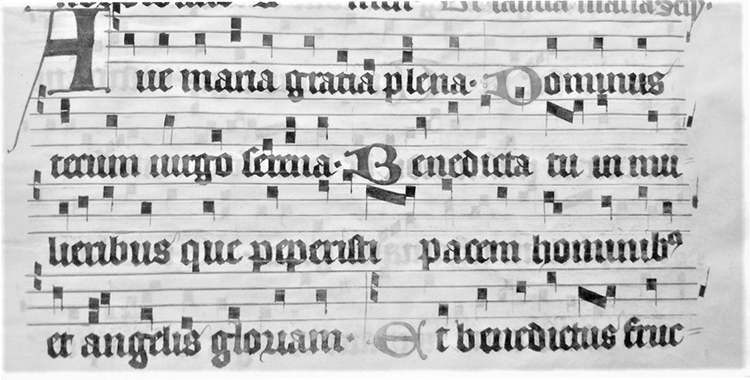 Aue maria gratia plena. Dominus
tecum uirgo serena. Benedicta tu in mu
lieribus que peperisti pacem hominibꝰ
et angelis gloriam. Et benedictus fruc